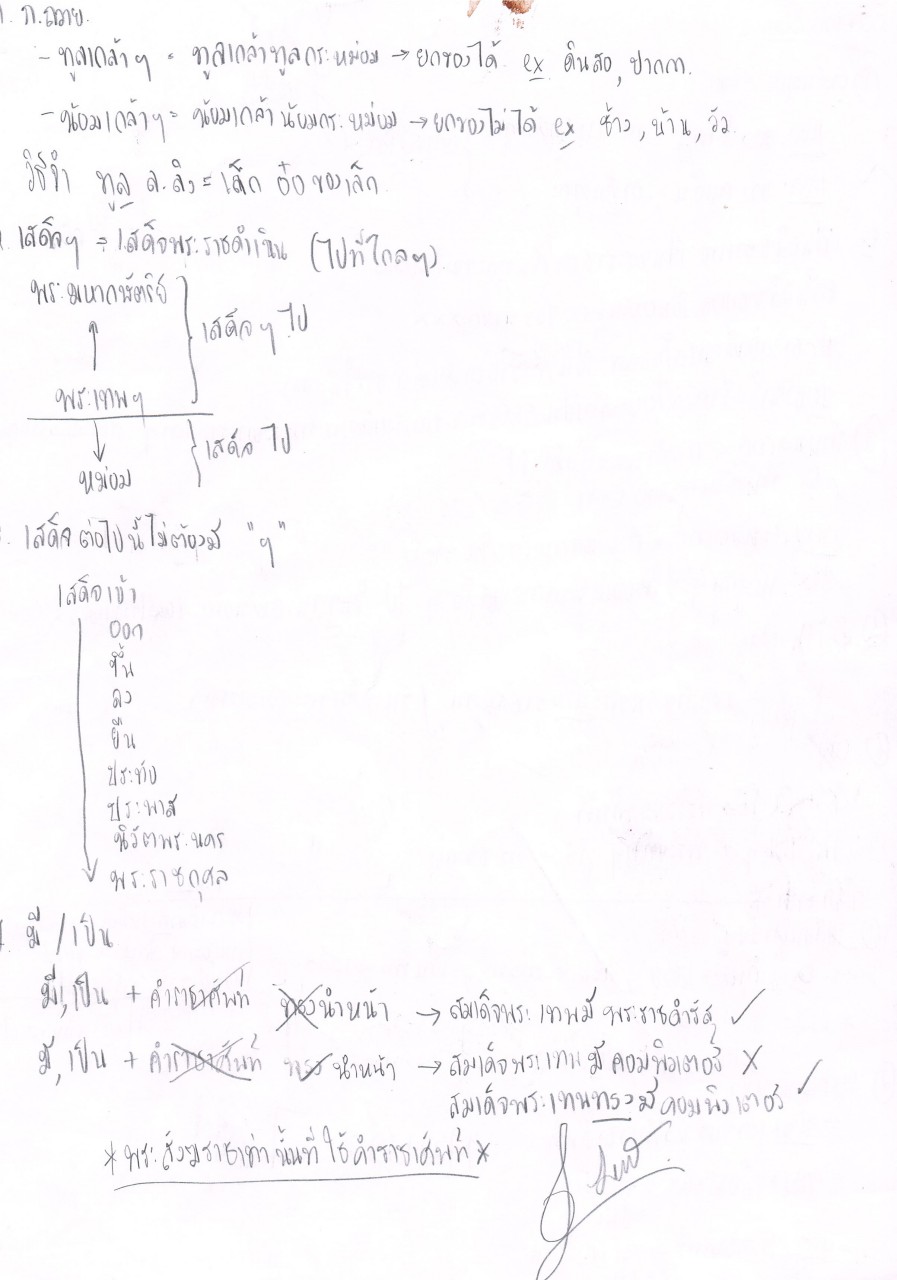 1. ก.ถวาย.
- ทูลเกล้าฯ = ทูลเกล้าทูลกระหม่อม → ยกของได้ ex ดินสอ, ปากกา.
- น้อมเกล้าฯ = น้อมเกล้าน้อมกระหม่อม → ยกของไม่ได้ ex ช้าง, บ้าน, วัว
วิธีจำ ทูล ล.ลิง = เล็ก คือของเล็ก
เสด็จฯ = เสด็จพระราชดำเนิน (ไปที่ไกลๆ)
พระมหากษัตริย์
↑ } เสด็จฯ ไป
พระเทพฯ
↓ } เสด็จ ไป
หม่อม
เสด็จต่อไปนี้ไม่ต้องมี "ฯ"
เสด็จเข้า
ออก
ขึ้น
ลง
ยืน
ประทับ
ประพาส
นิวัตพระนคร
พระราชกุศล
มี / เป็น
มี, เป็น + คำราชาศัพท์ ทรงนำหน้า → สมเด็จพระเทพมี พระราชดำรัส ✓
มี, เป็น + คำราชาศัพท์ ทรงนำหน้า → สมเด็จพระเทพ มี คอมพิวเตอร์ X
สมเด็จพระเทพทรงมีคอมพิวเตอร์ ✓
* พระสังฆราชเท่านั้นที่ใช้คำราชาศัพท์ *